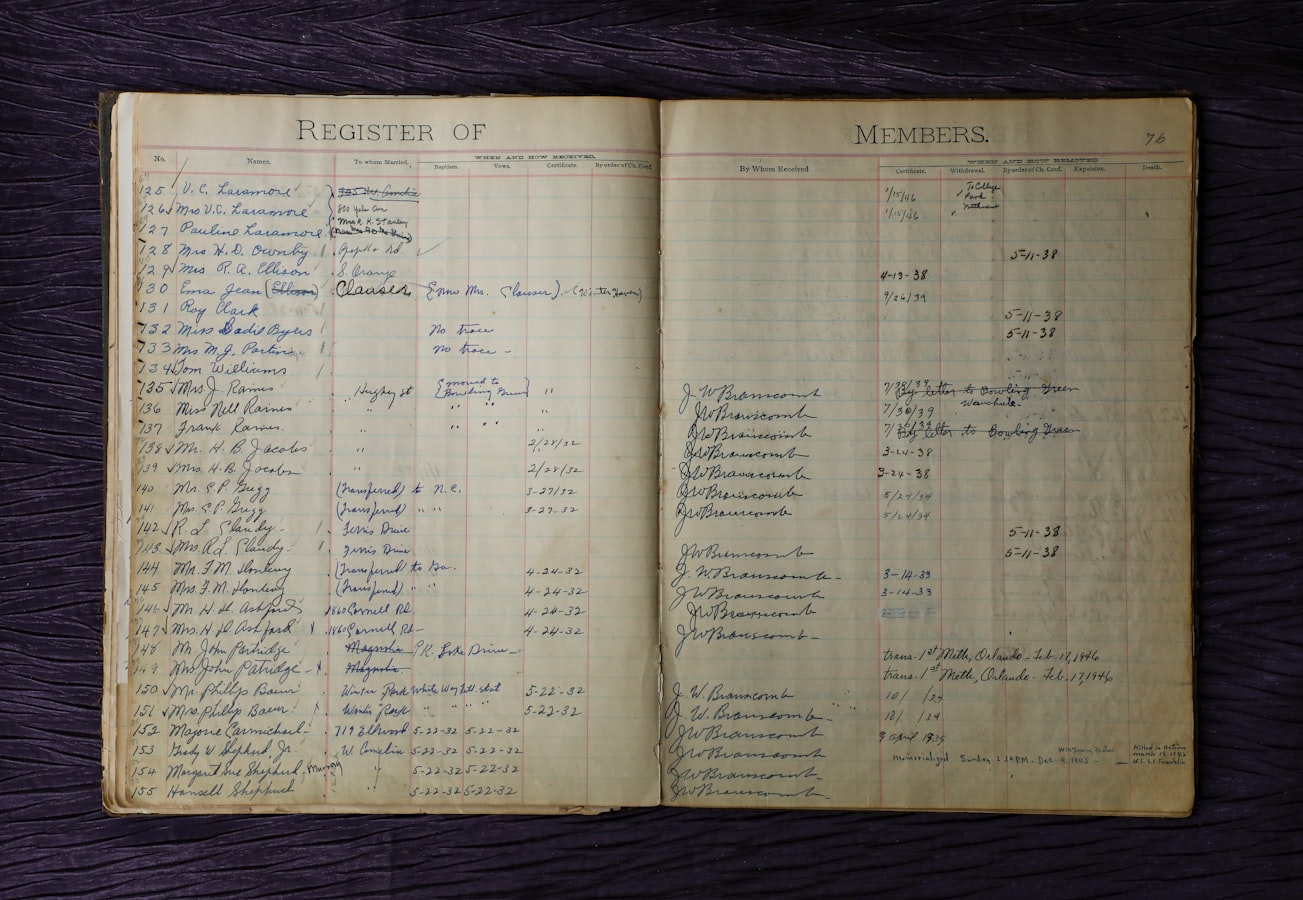 REGISTER OF MEMBERS. 76
No. Names. To whom Married. WHEN AND HOW RECEIVED. By Whom Received WHEN AND HOW REMOVED
Baptism. Vows. Certificate. By order of Ch. Conf. Certificate. Withdrawal. By order of Ch. Conf. Expulsion. Death.
125 V. C. Laramore 1/15/46 To College Park
126 Mrs V.C. Laramore 1/15/46
127 Pauline Laramore Mrs R. K. Stanley
128 Mrs H. D. Ownby Rd 5-11-38
129 Mrs R. A. Ellison S. Orange 4-13-38
130 Ema Jean (Ellison) Clauser (Now Mrs. Clauser) (Winter Haven) 9/26/39
131 Roy Clark 5-11-38
132 Miss Sadie Byers No trace 5-11-38
133 Mrs M. J. Partin No trace -
134 Tom Williams
135 Mrs. J. Raines Hughey st {moved to Bowling Green} " J. W. Branscomb By letter to Bowling Green
136 Miss Nell Raines " " " " J W Branscomb 7/30/39 Wauchula
137 Frank Raines " " " " J W Branscomb By letter to Bowling Green
138 Mr. H. B. Jacobs " 2/28/32 J W Branscomb 3-24-38
139 Mrs. H. B. Jacobs " 2/28/32 J W Branscomb 3-24-38
140 Mr. E. P. Gregg (Transferred) to N. C. 3-27/32 J W Branscomb 5/24/34
141 Mrs. E. P. Gregg (Transferred) " " 3-27-32 J W Branscomb 5/24/34
142 R. L. Clandy Ferris Drive 5-11-38
143 Mrs. R. L. Clandy Ferris Drive J W Branscomb 5-11-38
144 Mr. F. M. (Transferred) to Ga. 4-24-32 J. W. Branscomb 3-14-33
145 Mrs. F. M. (Transferred) " 4-24-32 J W Branscomb 3-14-33
146 Mr H. H. Ashford 1860 Cornell Rd 4-24-32 J W Branscomb
147 Mrs. H. H. Ashford 1860 Cornell Rd 4-24-32 J W Branscomb
148 Mr. John Partridge Magnolia Drive trans - 1st Meth, Orlando - Feb. 17, 1946
149 Mrs John Patridge Magnolia trans - 1st Meth, Orlando - Feb. 17, 1946
150 Mr Phillip Bauer Winter Park 5-22-32 J. W. Branscomb 10/ /34
151 Mrs. Phillip Bauer Winter Park " " " " 5-22-32 J. W. Branscomb 10/ /34
152 Marjorie Carmichael 719 Ellwood 5-22-32 5-22-32 J W Branscomb 9 April 1935
153 Grady W Shepherd, Jr. W. Amelia 5-22-32 5-22-32 J W Branscomb Memorialized Sunday 2:30 P.M. - Dec. 9, 1945 Killed in Action March 19, 1945 U.S.S. Franklin
154 Margaret Sue Shepherd - Murray " 5-22-32 5-22-32 J W Branscomb
155 Hansell Shepherd 5-22-32 5-22-32 J W Branscomb